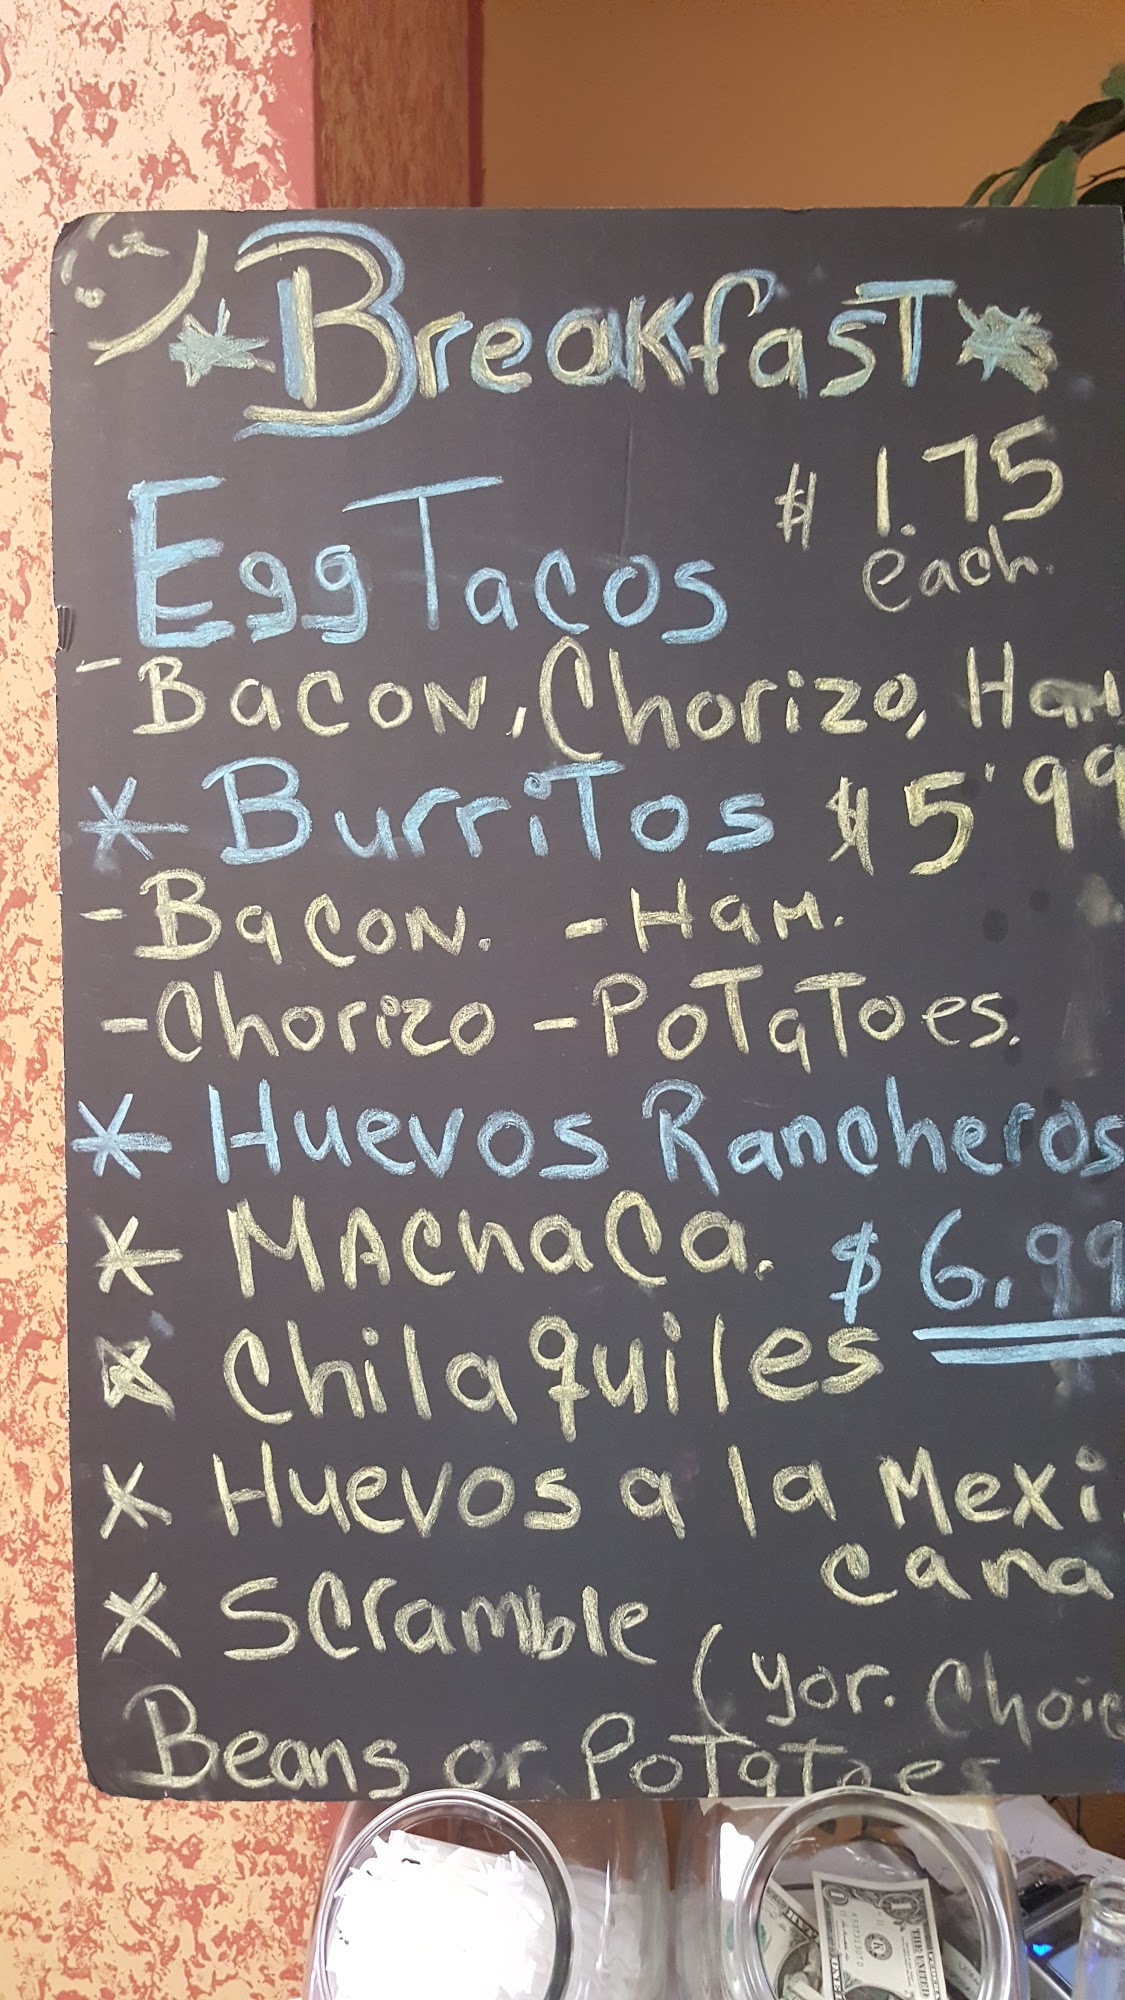 *Breakfast*
$ 1.75
Egg Tacos each.
- Bacon, Chorizo, Ham
* Burritos $5.99
- Bacon. - Ham.
- Chorizo - Potatoes.
* Huevos Rancheros
* Machaca. $6.99
* Chilaquiles
* Huevos a la Mexi
cana
* Scramble
(yor. Choic
Beans or Potatoes
1
THE UNITED